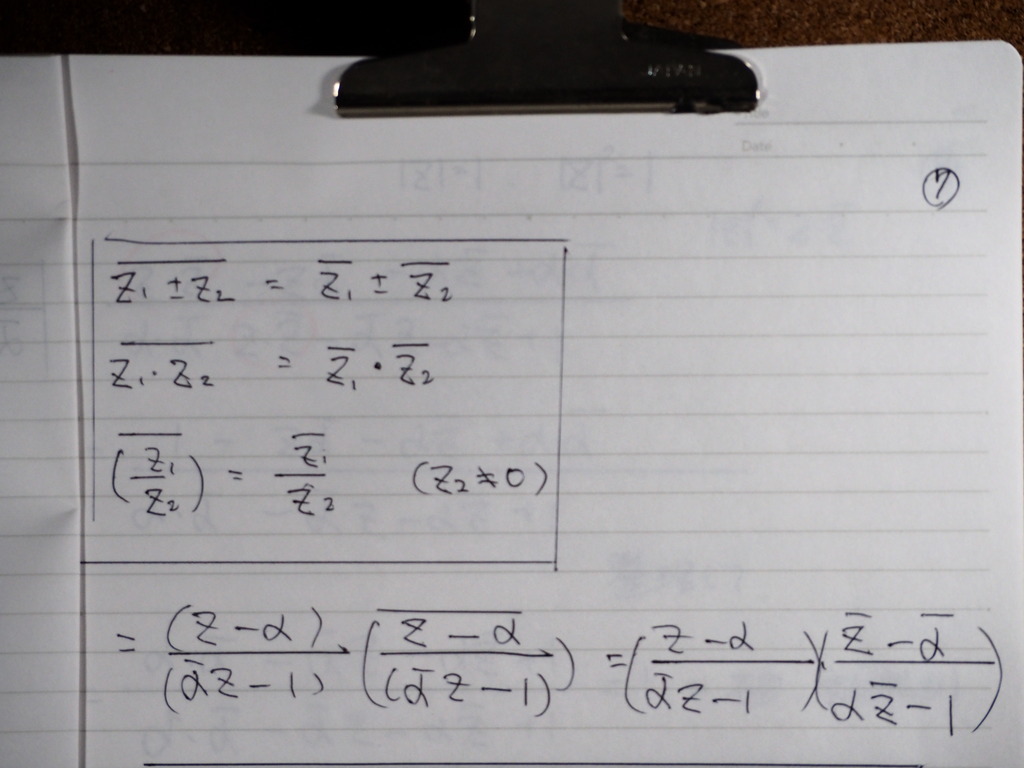 Date
⑦
\overline{z_1 \pm z_2} = \overline{z_1} \pm \overline{z_2}
\overline{z_1 \cdot z_2} = \overline{z_1} \cdot \overline{z_2}
\overline{\left(\frac{z_1}{z_2}\right)} = \frac{\overline{z_1}}{z_2} (z_2 \neq 0)
= \frac{(z-\alpha)}{(\bar{\alpha}z-1)} \cdot \overline{\left(\frac{z-\alpha}{(\bar{\alpha}z-1)}\right)} = \left(\frac{z-\alpha}{\bar{\alpha}z-1}\right) \cdot \left(\frac{\bar{z}-\bar{\alpha}}{\alpha\bar{z}-1}\right)